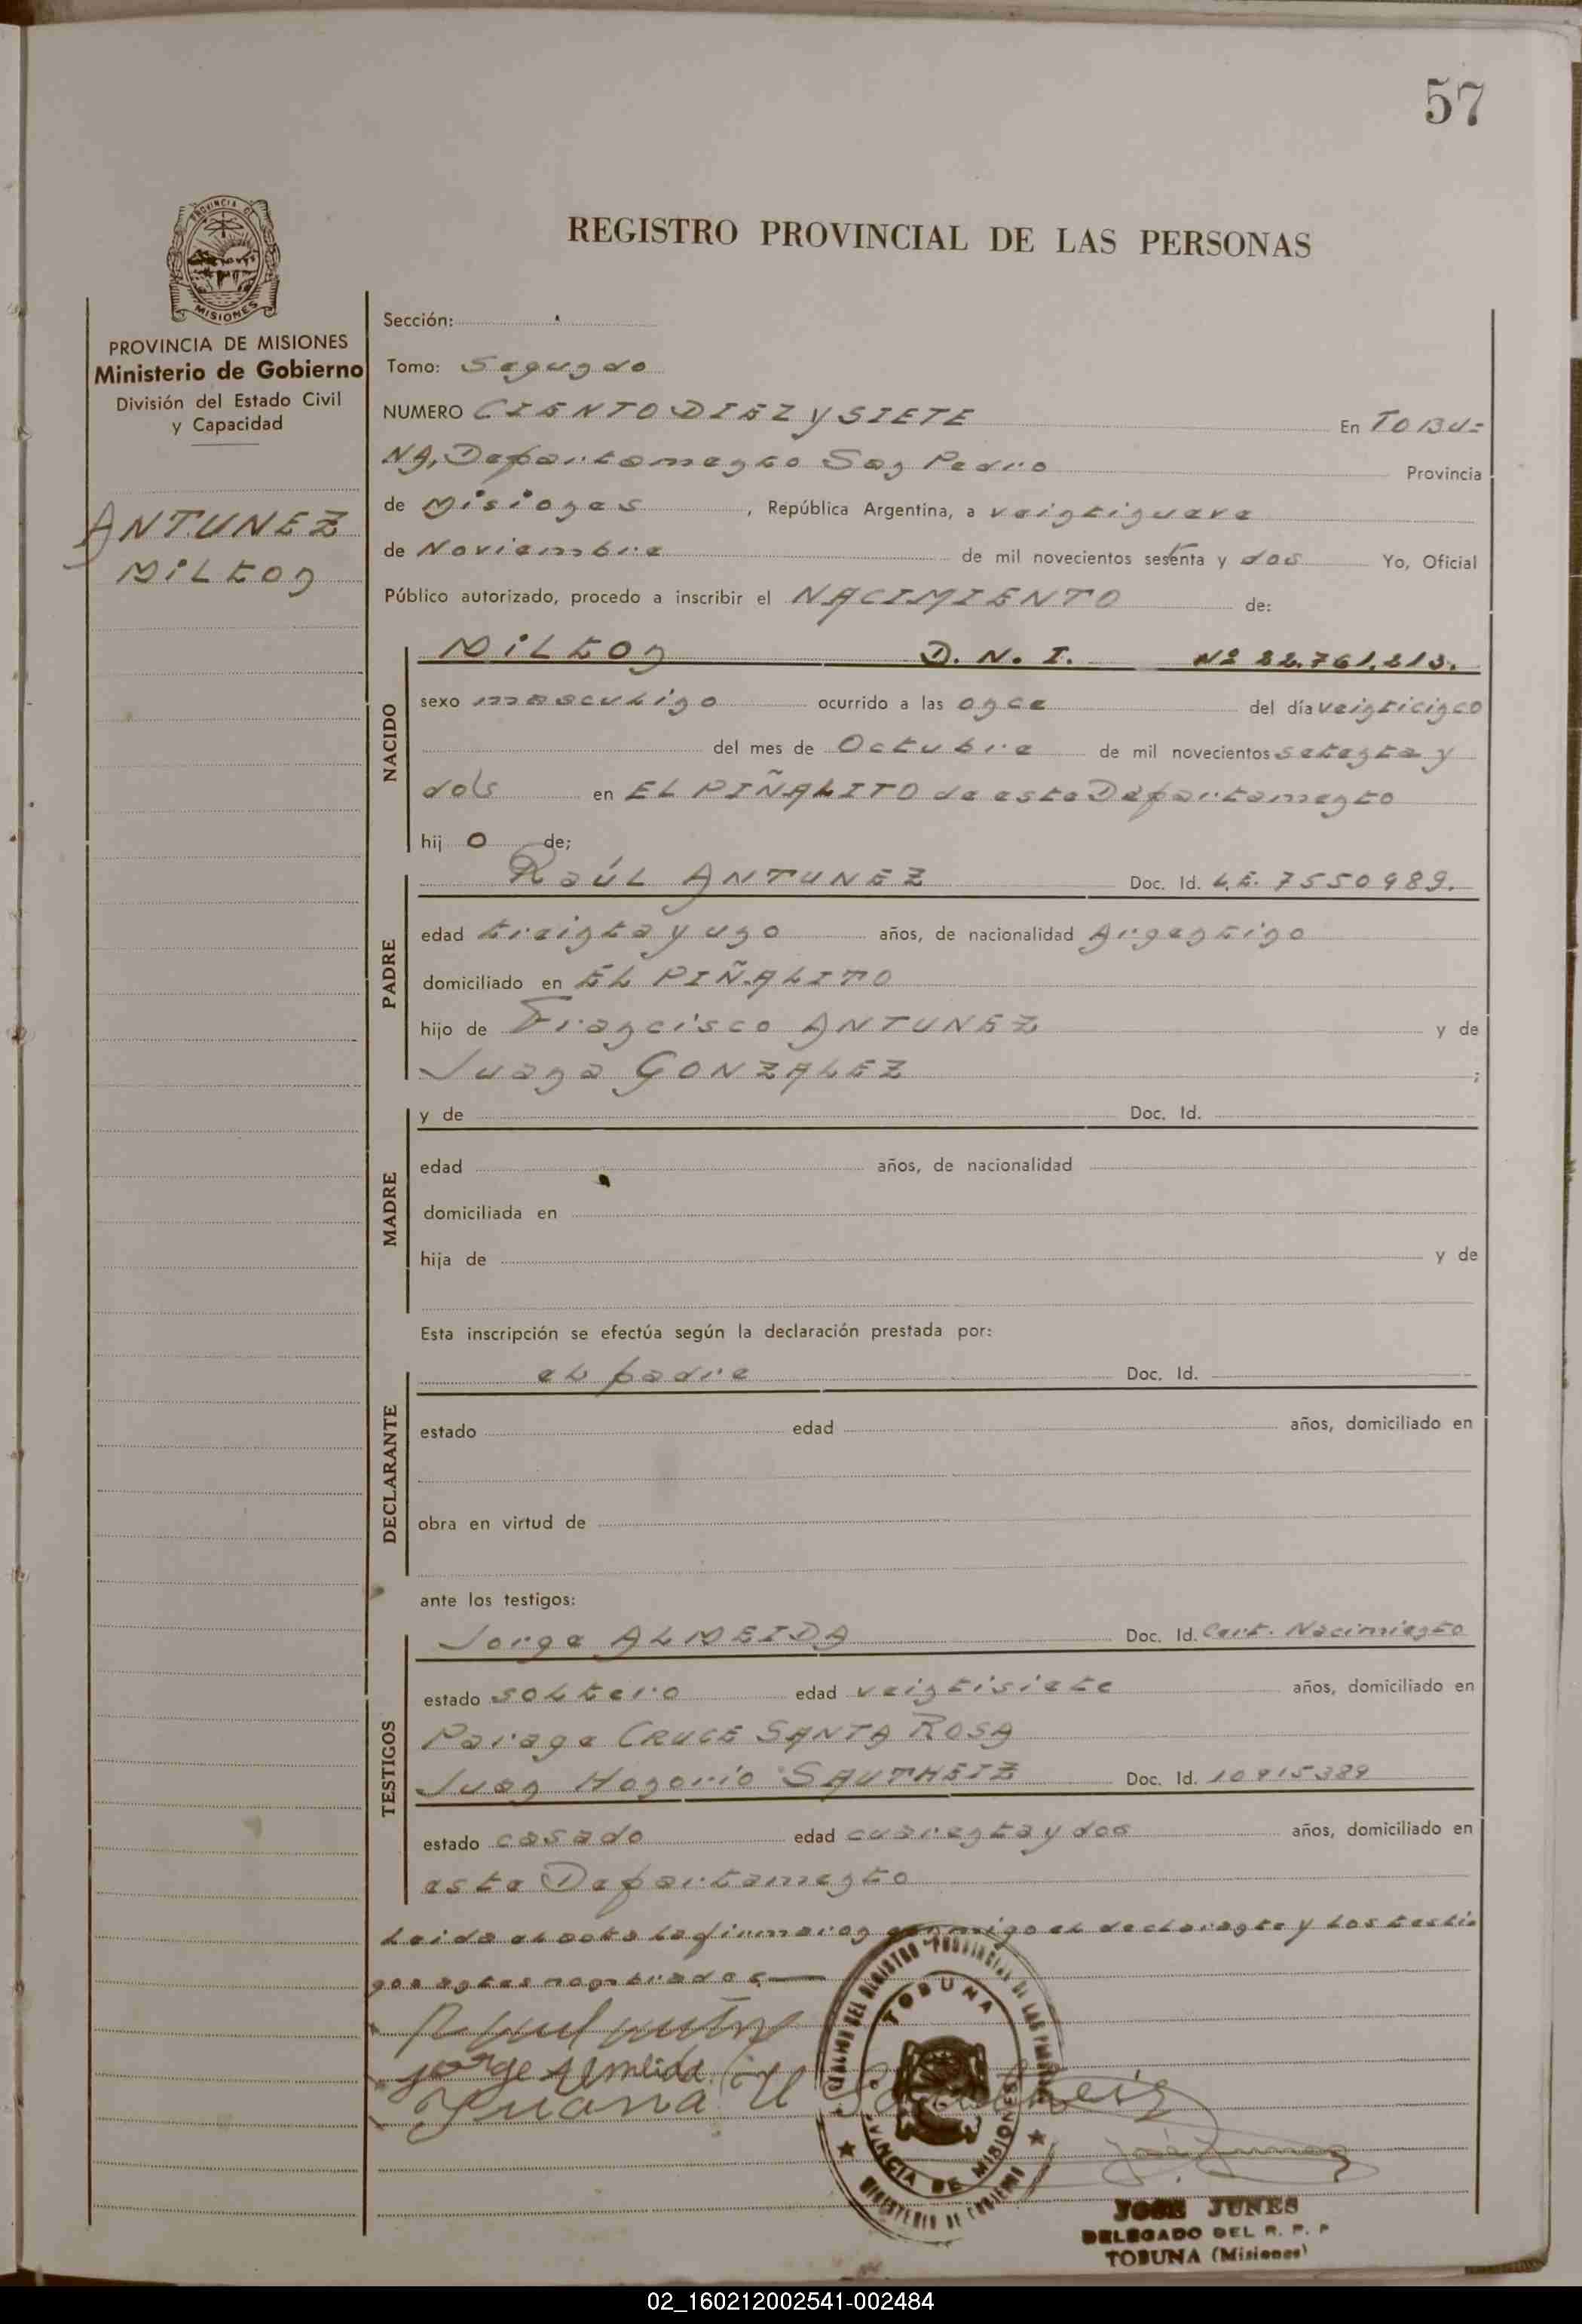 57
REGISTRO PROVINCIAL DE LAS PERSONAS
PROVINCIA DE MISIONES
Ministerio de Gobierno
División del Estado Civil
y Capacidad
ANTUNEZ
MiLton
Sección:
Tomo: Segundo
NUMERO CIENTO DIEZ y SIETE En TOBU=
NA, Departamento San Pedro Provincia
de Misiones, República Argentina, a veintinueve
de Noviembre de mil novecientos setenta y dos Yo, Oficial
Público autorizado, procedo a inscribir el NACIMIENTO de:
NACIDO
MiLton D. N. I. Nº 22.761.213.
sexo masculino ocurrido a las once del día veinticinco
del mes de Octubre de mil novecientos setenta y
dos en EL PIÑALITO de este Departamento
hij o de;
PADRE
RaúL ANTUNEZ Doc. Id. L.E. 7550989.
edad treinta y uno años, de nacionalidad Argentino
domiciliado en EL PIÑALITO
hijo de Francisco ANTUNEZ y de
Juana GONZALEZ ;
MADRE
y de Doc. Id.
edad años, de nacionalidad
domiciliada en
hija de y de
Esta inscripción se efectúa según la declaración prestada por:
DECLARANTE
el padre Doc. Id.
estado edad años, domiciliado en
obra en virtud de
ante los testigos:
TESTIGOS
Jorge ALMEIDA Doc. Id. Cert. Nacimiento
estado soltero edad veintisiete años, domiciliado en
Parage CRUCE SANTA ROSA
Juan Honorio SAUTHEIZ Doc. Id. 10915389
estado casado edad cuarenta y dos años, domiciliado en
este Departamento
Leida el acta la firmaron conmigo el declarante y los testi
gos antes nombrados.
Jorge Almeida
Juana H
TOBUNA
PROVINCIA DE MISIONES
MINISTERIO DE GOBIERNO
JOSE JUNES
DELEGADO DEL R. P. P
TOBUNA (Misiones)
02_160212002541-002484